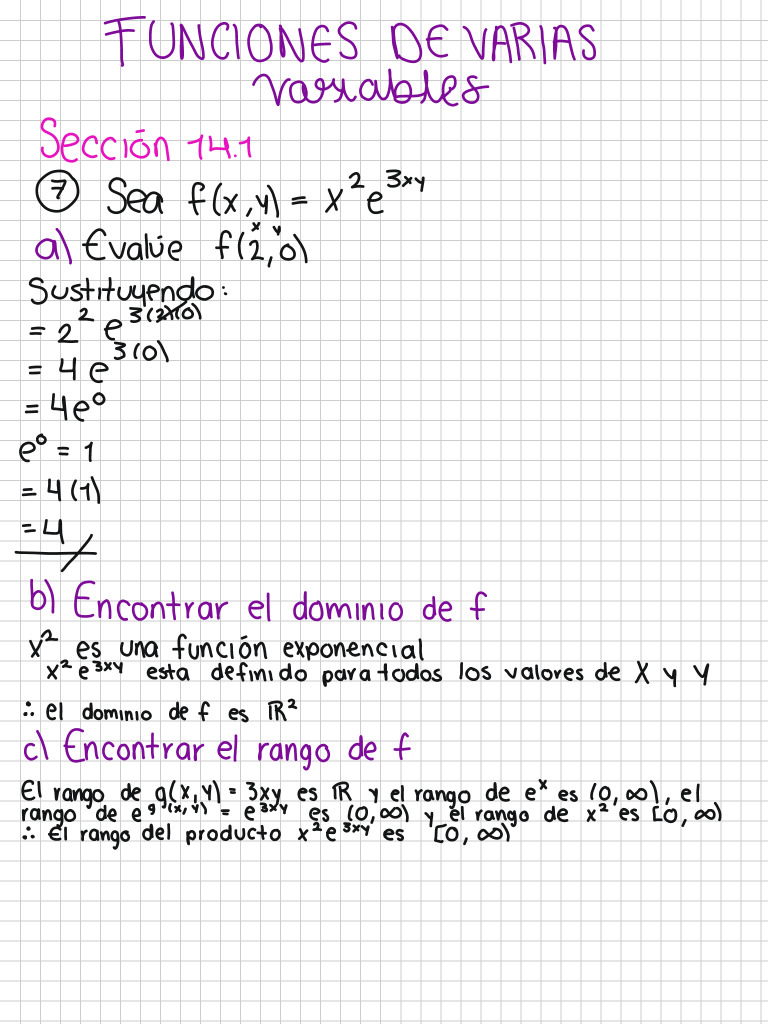 FUNCIONES DE VARIAS
variables
Sección 14.1
⑦ Sea f(x,y) = x²e^3xy
a) Evalúe f(2,0)
x y
Sustituyendo:
= 2² e^3(2)(0)
= 4e^3(0)
= 4e⁰
e⁰ = 1
= 4(1)
= 4
b) Encontrar el dominio de f
x² es una función exponencial
x²e^3xy esta definido para todos los valores de X y Y
∴ el dominio de f es ℝ²
c) Encontrar el rango de f
El rango de g(x,y) = 3xy es ℝ y el rango de e^x es (0,∞), el
rango de e^g(x,y) = e^3xy es (0,∞) y el rango de x² es [0,∞)
∴ El rango del producto x²e^3xy es [0,∞)